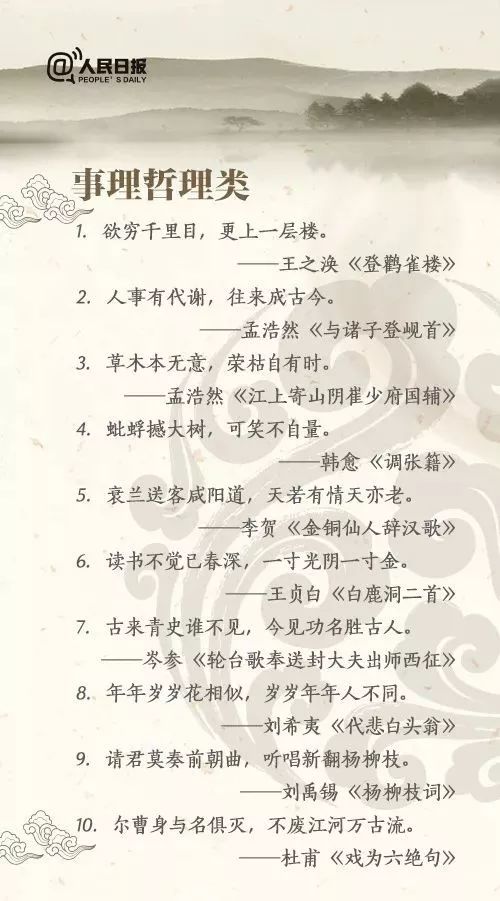 @人民日报
PEOPLE'S DAILY
事理哲理类
1. 欲穷千里目，更上一层楼。
——王之涣《登鹳雀楼》
2. 人事有代谢，往来成古今。
——孟浩然《与诸子登岘首》
3. 草木本无意，荣枯自有时。
——孟浩然《江上寄山阴崔少府国辅》
4. 蚍蜉撼大树，可笑不自量。
——韩愈《调张籍》
5. 衰兰送客咸阳道，天若有情天亦老。
——李贺《金铜仙人辞汉歌》
6. 读书不觉已春深，一寸光阴一寸金。
——王贞白《白鹿洞二首》
7. 古来青史谁不见，今见功名胜古人。
——岑参《轮台歌奉送封大夫出师西征》
8. 年年岁岁花相似，岁岁年年人不同。
——刘希夷《代悲白头翁》
9. 请君莫奏前朝曲，听唱新翻杨柳枝。
——刘禹锡《杨柳枝词》
10. 尔曹身与名俱灭，不废江河万古流。
——杜甫《戏为六绝句》